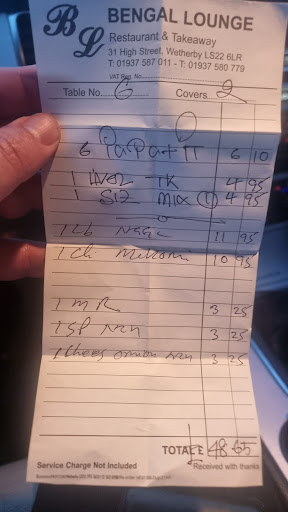 BL
BENGAL LOUNGE
Restaurant & Takeaway
31 High Street, Wetherby LS22 6LR
T: 01937 587 011 - T: 01937 580 779
VAT Reg. No
Table No. 6 Covers 2
6 PaPa+PT 6 10
1 Liver TK 4 95
1 SIZ MIX 4 95
1 Lb 11 95
1 Ch 10 95
1 M R 3 25
1 SP Nan 3 25
1 Chees onion Nan 3 25
TOTAL £ 48 65
Service Charge Not Included Received with thanks